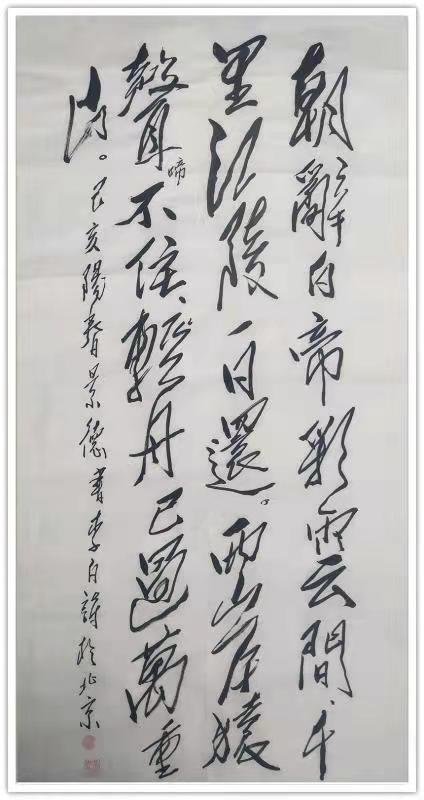 朝辭白帝彩雲間、千
里江陵一日還。兩岸猿
聲啼不住、輕舟已過萬重
山。己亥陽春景德書李白詩於北京